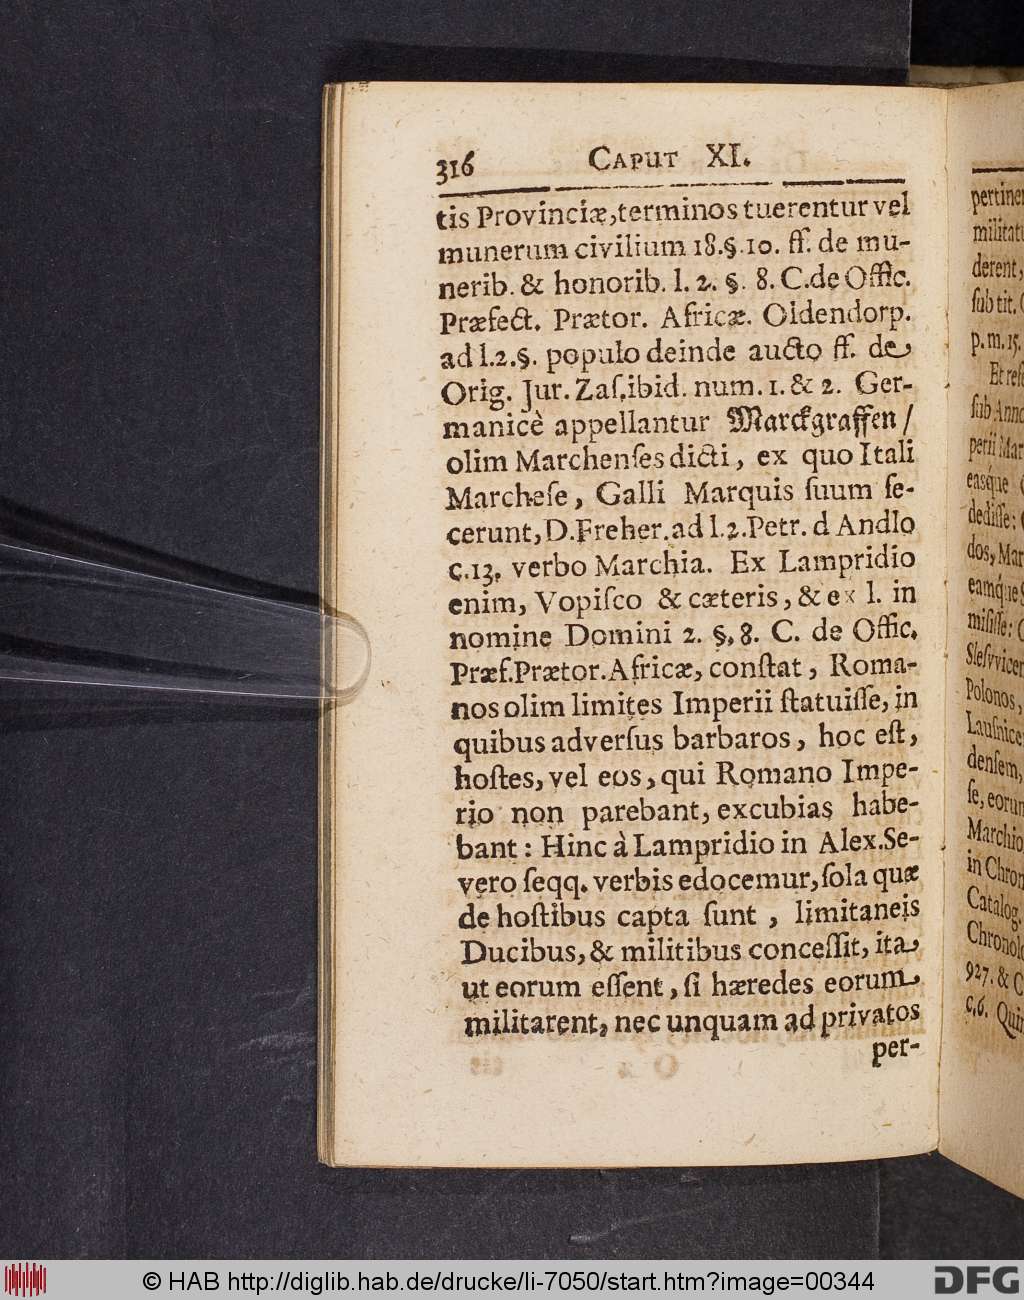 316 CAPUT XI.
tis Provinciæ, terminos tuerentur vel
munerum civilium 18. §. 10. ff. de mu-
nerib. & honorib. l. 2. §. 8. C. de Offic.
Præfect. Prætor. Africæ. Oldendorp.
ad l. 2. §. populo deinde aucto ff. de
Orig. Jur. Zaſ. ibid. num. 1. & 2. Ger-
manicè appellantur Marckgraffen /
olim Marchenſes dicti, ex quo Itali
Marcheſe, Galli Marquis ſuum fe-
cerunt, D. Freher. ad l. 2. Petr. d Andlo
c. 13. verbo Marchia. Ex Lampridio
enim, Vopiſco & cæteris, & ex l. in
nomine Domini 2. §. 8. C. de Offic.
Præf. Prætor. Africæ, conſtat, Roma-
nos olim limites Imperii ſtatuiſſe, in
quibus adverſus barbaros, hoc eſt,
hoſtes, vel eos, qui Romano Impe-
rio non parebant, excubias habe-
bant: Hinc à Lampridio in Alex. Se-
vero ſeqq. verbis edocemur, ſola quæ
de hoſtibus capta ſunt, limitaneis
Ducibus, & militibus conceſſit, ita
ut eorum eſſent, ſi hæredes eorum
militarent, nec unquam ad privatos
per-
pertine
militat
derent,
ſub tit.
p. m. 15.
Et reſ
ſub Anno
perii Mar
easque
dediſſe:
dos, Mar
eamque
miſiſſe:
Sleſvvicen
Polonos,
Lauſnice
denſem,
ſe, eorum
Marchio
in Chron
Catalog.
Chronolo
927. & C
c. 6. Quin
© HAB http://diglib.hab.de/drucke/li-7050/start.htm?image=00344
DFG